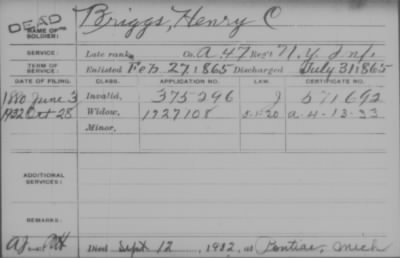 DEAD
NAME OF SOLDIER: Briggs, Henry C
SERVICE: Late rank, Co. A. 47 Reg't N.Y. Inf.
TERM OF SERVICE: Enlisted Feb 27, 1865 Discharged July 31, 1865
DATE OF FILING. CLASS. APPLICATION NO. LAW. CERTIFICATE NO.
1880 June 3 Invalid, 375296 J 571692
1932 Oct 28 Widow, 1727108 5-1-20 A-4-13-33
Minor,
ADDITIONAL SERVICES:
REMARKS:
Died Sept 12, 1932, at Pontiac, Mich